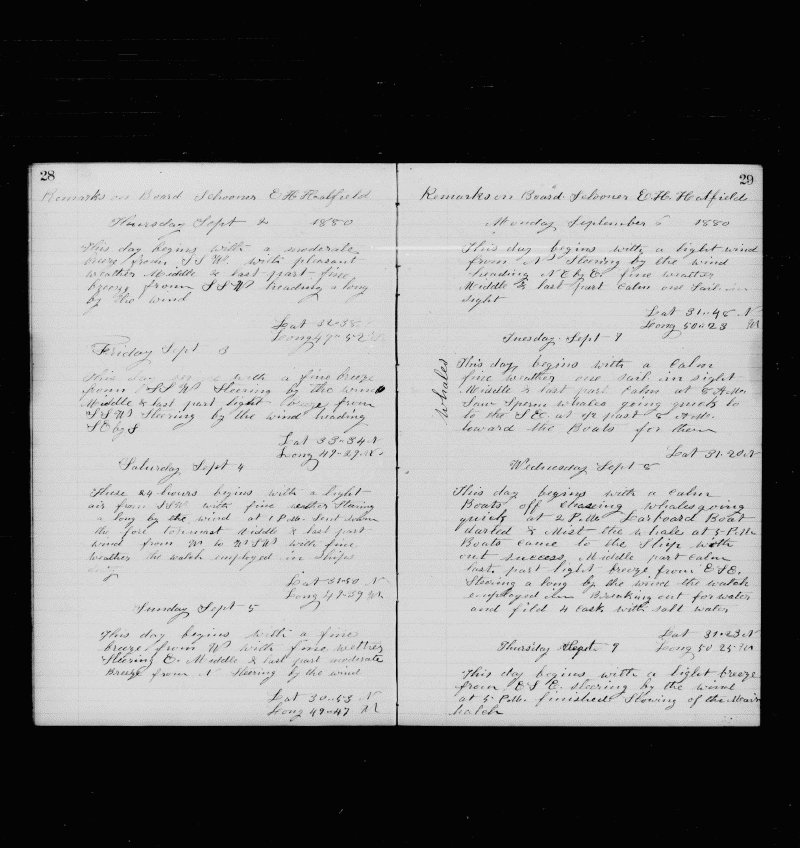 28
Remarks on Board Schooner E H Hatfield
Thursday Sept 2 1880
This day begins with a moderate
breeze from S S W. with pleasant
weather Middle & last part fine
breeze from S S W heading a long
by the wind
Lat 32-38
Long 49-52 W
Friday Sept 3
This day begins with a fine breeze
from S S W Steering by the wind
Middle & last part light breeze from
S S W Steering by the wind heading
S E by S
Lat 33-34 N
Long 49-29 W
Saturday Sept 4
These 24 hours begins with a light
air from S W. with fine weather Stering
a long by the wind at 1 P.M. Sent down
the fore topmast Middle & last part
wind from W to W S W with fine
weather the watch employed in Ships
duty
Lat 31-50 N
Long 49-39 W
Sunday Sept 5
This day begins with a fine
breeze from W with fine wether
Steering E. Middle & last part moderate
Breeze from N Steering by the wind
Lat 30-53 N
Long 49-47 W
29
Remarks on Board Schooner E H Hatfield
Monday September 6 1880
This day begins with a light wind
from N Steering by the wind
heading N E by E. fine weather
Middle & last part Calm one Sail in
sight
Lat 31-48 N
Long 50-23 W
Tuesday Sept 7
Whales
This day begins with a Calm
fine weather one sail in sight
Middle & last part Calm at 8 A.M.
Saw Sperm whales going quick to
to the S E. at 1/2 past 8 A.M.
loward the Boats for them
Lat 31-20 N
Wednesday Sept 8
This day begins with a Calm
Boats off Chaseing whales going
quick at 2 P.M. Larboard Boat
darted & Mist the whale at 5 P.M.
Boats came to the Ship with
out success, Middle part Calm
last part light breeze from E S E.
Steering a long by the wind the watch
employed in Breaking out for water
and fild 4 cask with salt water
Lat 31-23 N
Long 50 25 W
Thursday Sept 9
This day begins with a light breeze
from E S E. steering by the wind
at 5 P.M. finished Stowing of the Main
hatch